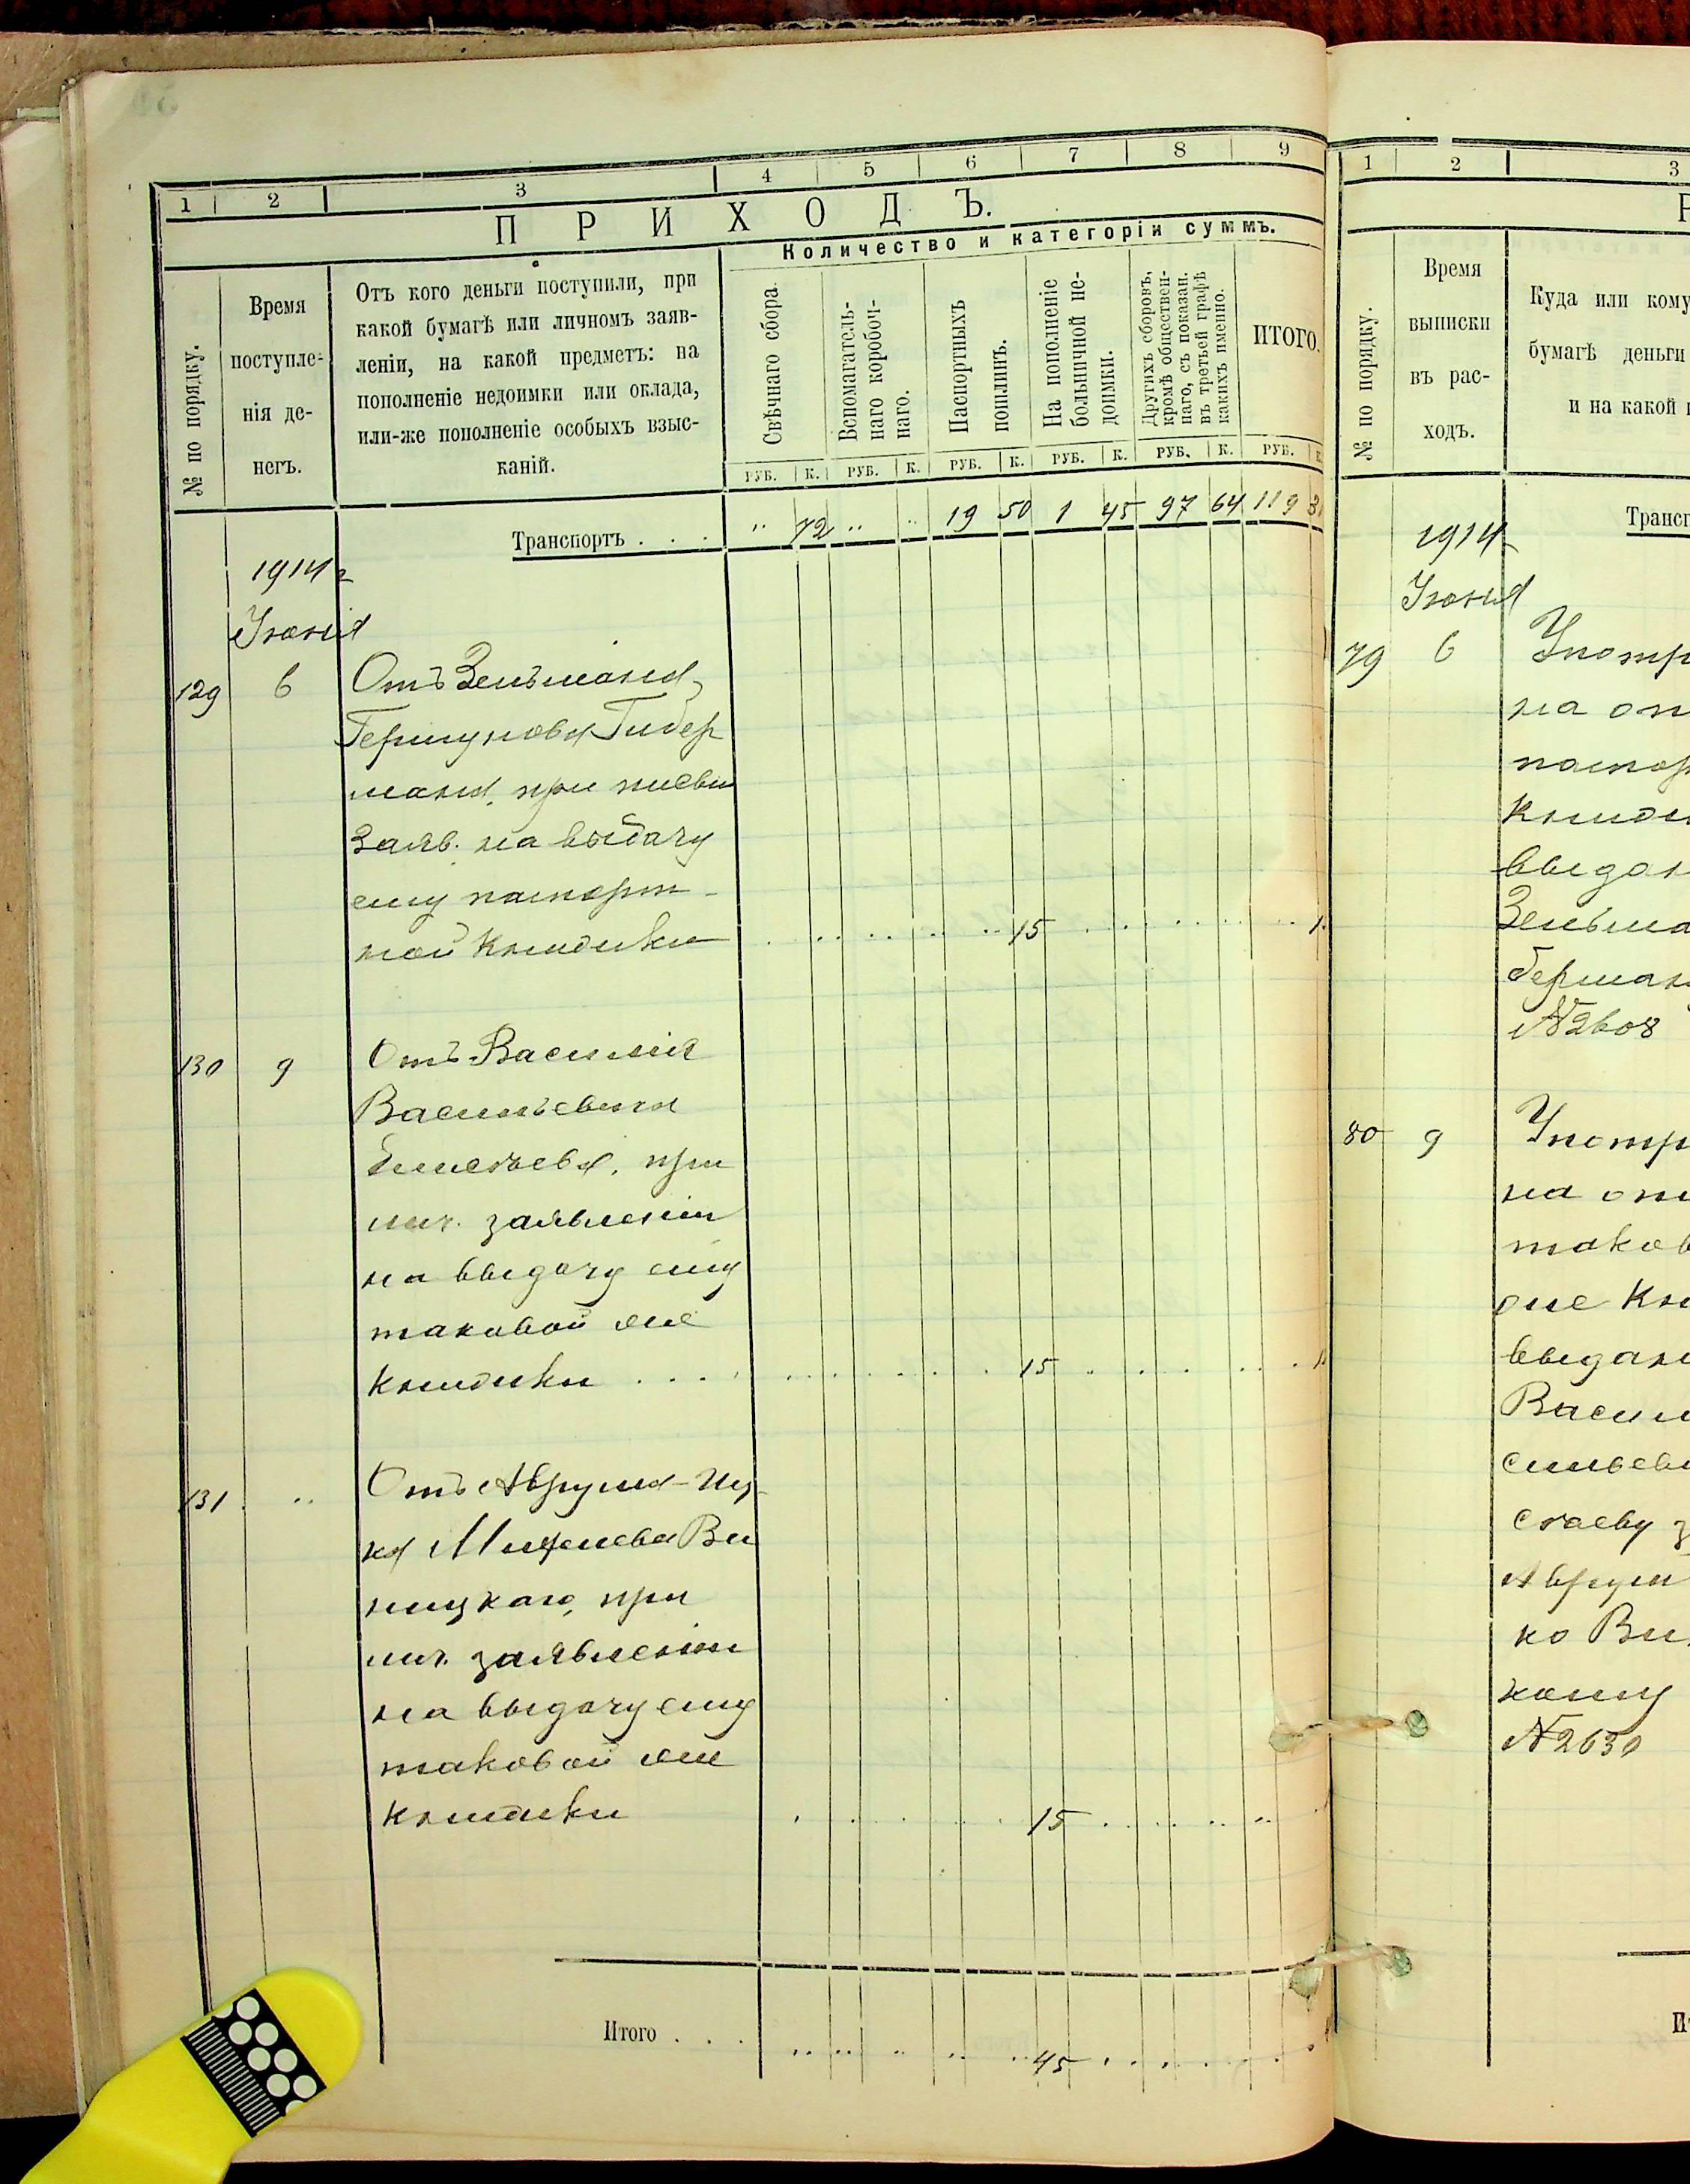 1 2 3 4 5 6 7 8 9
ПРИХОДЪ.
Количество и категоріи суммъ.
№ по порядку.
Время
поступле-
нія де-
негъ.
Отъ кого деньги поступили, при
какой бумагѣ или личномъ заяв-
леніи, на какой предметъ: на
пополненіе недоимки или оклада,
или-же пополненіе особыхъ взыс-
каній.
Свѣчнаго сбора.
Вспомагатель-
наго коробоч-
наго.
Паспортныхъ
пошлинъ.
На пополненіе
больничной не-
доимки.
Другихъ сборовъ,
кромѣ обществен-
наго, съ показан.
въ третьей графѣ
какихъ именно.
ИТОГО.
РУБ. К. РУБ. К. РУБ. К. РУБ. К. РУБ. К. РУБ.
Транспортъ . . . " 72 " " 19 50 1 45 97 64 119 3
1914 г
Іюня
129 6 Отъ Зельмана
Гершунова Гибер
мана, при письм
Заяв. на выдачу
ему паспорт-
ной Книжки 15
130 9 Отъ Василія
Васильевича
при
лич. заявленіи
на выдачу ему
таковой же
Книжки . . . 15
131 " Отъ Аврума-Иц
ка Ви
ницкаго, при
лич. заявленіи
на выдачу ему
таковой же
Книжки 15
Итого . . . 45
1 2 3
Р
№ по порядку.
Время
выписки
въ рас-
ходъ.
Куда или кому
бумагѣ деньги
и на какой
Трансп
1914
Іюня
79 6 Употр
на от
паспор
Книж
выдан
Зельма
берман
№ 2608
80 9 Употр
на от
таков
же Кн
выдан
Васил
сильев
стаеву з
Аврум
ко Ви
кому
№ 2630
Ит